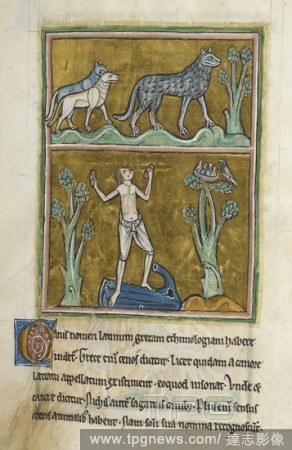 Canis nomen latinum grecam ethimologiam habere
videt. Grece eni cenos dicitur. licet quidam a canore
latratus appellatum existiment. eo quod insonat. Unde &
canere dicitur. Nichil aute sagatius canibus. Plus eni sensus
ceteris animalibus habent. Nam soli sua nomina recognoscunt
www.tpgnews.com / 達志影像